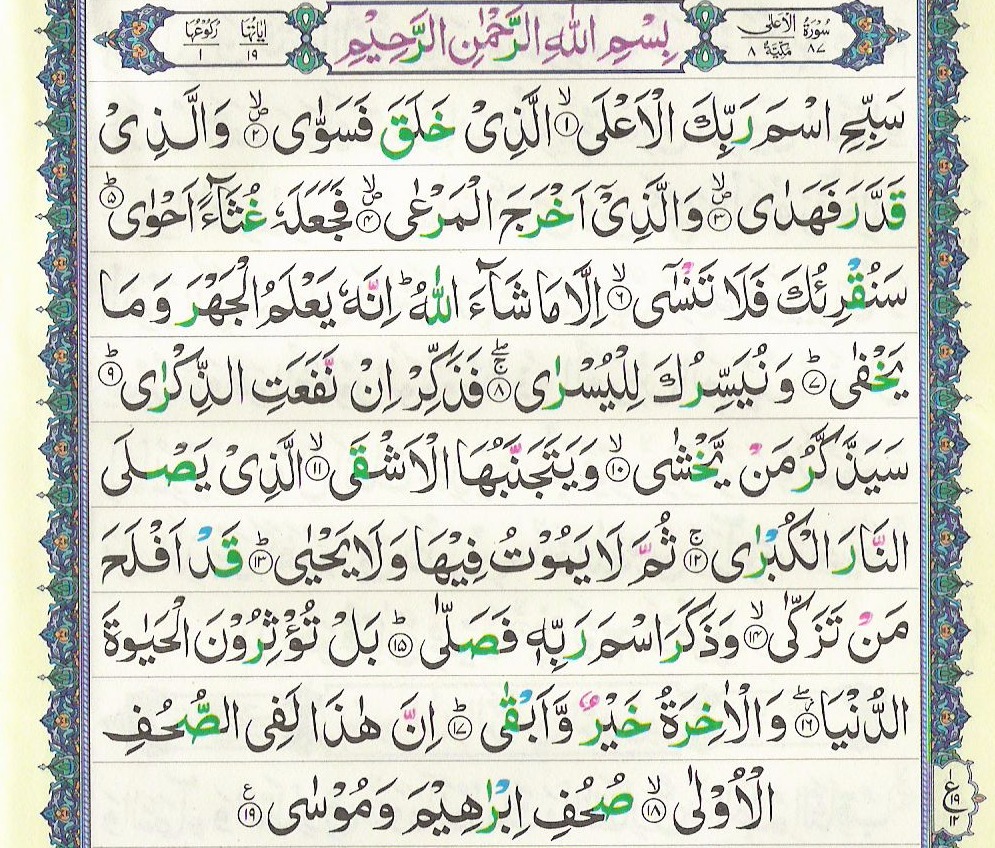 سُوْرَةُ الْاَعْلٰى ٨٧ مَكِّيَّةٌ ٨ بِسْمِ اللّٰهِ الرَّحْمٰنِ الرَّحِيْمِ اٰيَاتُهَا ١٩ رُكُوْعُهَا ١
سَبِّحِ اسْمَ رَبِّكَ الْاَعْلَى ۙ﴿۱﴾ الَّذِىْ خَلَقَ فَسَوّٰى ۪ۙ﴿۲﴾ وَالَّذِىْ
قَدَّرَ فَهَدٰى ۪ۙ﴿۳﴾ وَالَّذِىْۤ اَخْرَجَ الْمَرْعٰى ۪ۙ﴿۴﴾ فَجَعَلَهٗ غُثَآءً اَحْوٰى ؕ﴿۵﴾
سَنُقْرِئُكَ فَلَا تَنْسٰٓى ۙ﴿۶﴾ اِلَّا مَا شَآءَ اللّٰهُ ؕ اِنَّهٗ يَعْلَمُ الْجَهْرَ وَمَا
يَخْفٰى ؕ﴿۷﴾ وَنُيَسِّرُكَ لِلْيُسْرٰى ۚۖ﴿۸﴾ فَذَكِّرْ اِنْ نَّفَعَتِ الذِّكْرٰى ؕ﴿۹﴾
سَيَذَّكَّرُ مَنْ يَّخْشٰى ۙ﴿۱۰﴾ وَيَتَجَنَّبُهَا الْاَشْقَى ۙ﴿۱۱﴾ الَّذِىْ يَصْلَى
النَّارَ الْكُبْرٰى ۚ﴿۱۲﴾ ثُمَّ لَا يَمُوْتُ فِيْهَا وَلَا يَحْيٰى ؕ﴿۱۳﴾ قَدْ اَفْلَحَ
مَنْ تَزَكّٰى ۙ﴿۱۴﴾ وَذَكَرَ اسْمَ رَبِّهٖ فَصَلّٰى ؕ﴿۱۵﴾ بَلْ تُؤْثِرُوْنَ الْحَيٰوةَ
الدُّنْيَا ۖ﴿۱۶﴾ وَالْاٰخِرَةُ خَيْرٌ وَّاَبْقٰى ؕ﴿۱۷﴾ اِنَّ هٰذَا لَفِى الصُّحُفِ
الْاُوْلٰى ۙ﴿۱۸﴾ صُحُفِ اِبْرٰهِيْمَ وَمُوْسٰى ﴿۱۹﴾ ع
١
ع ١٩
١٢